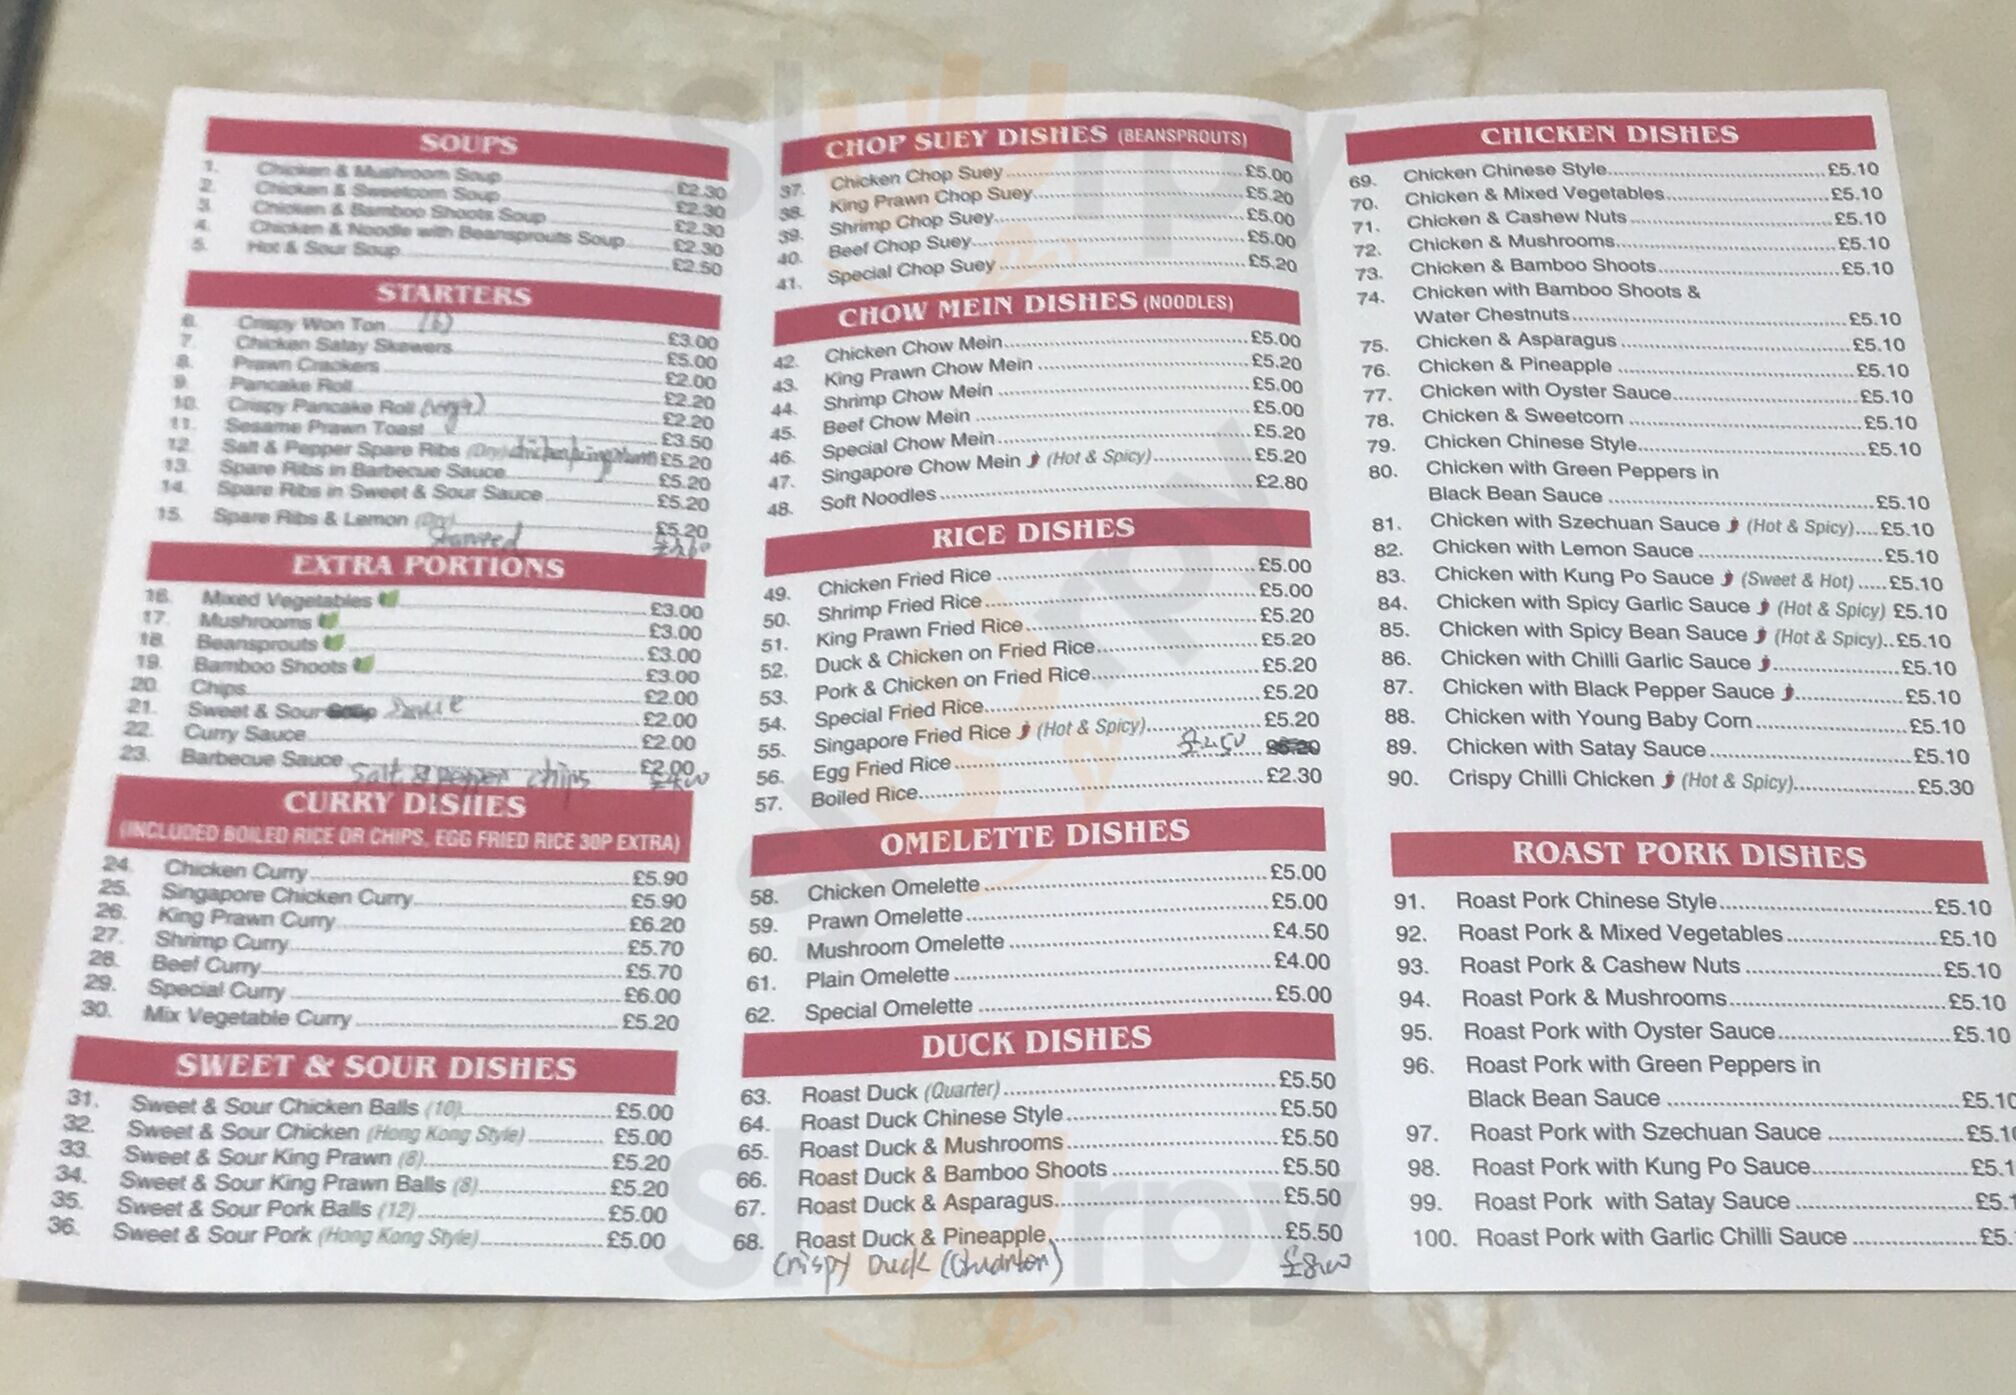 SOUPS
1. Chicken & Mushroom Soup £2.30
2. Chicken & Sweetcorn Soup £2.30
3. Chicken & Bamboo Shoots Soup £2.30
4. Chicken & Noodle with Beansprouts Soup £2.30
5. Hot & Sour Soup £2.50
STARTERS
6. Crispy Won Ton £3.00
7. Chicken Satay Skewers £5.00
8. Prawn Crackers £2.00
9. Pancake Roll £2.20
10. Crispy Pancake Roll £2.20
11. Sesame Prawn Toast £3.50
12. Salt & Pepper Spare Ribs (Dry) £5.20
13. Spare Ribs in Barbecue Sauce £5.20
14. Spare Ribs in Sweet & Sour Sauce £5.20
15. Spare Ribs & Lemon (Dry) £5.20
EXTRA PORTIONS
16. Mixed Vegetables £3.00
17. Mushrooms £3.00
18. Beansprouts £3.00
19. Bamboo Shoots £3.00
20. Chips £2.00
21. Sweet & Sour £2.00
22. Curry Sauce £2.00
23. Barbecue Sauce £2.00
Salt & pepper chips
CURRY DISHES
(INCLUDED BOILED RICE OR CHIPS, EGG FRIED RICE 30P EXTRA)
24. Chicken Curry £5.90
25. Singapore Chicken Curry £5.90
26. King Prawn Curry £6.20
27. Shrimp Curry £5.70
28. Beef Curry £5.70
29. Special Curry £6.00
30. Mix Vegetable Curry £5.20
SWEET & SOUR DISHES
31. Sweet & Sour Chicken Balls (10) £5.00
32. Sweet & Sour Chicken (Hong Kong Style) £5.00
33. Sweet & Sour King Prawn (8) £5.20
34. Sweet & Sour King Prawn Balls (8) £5.20
35. Sweet & Sour Pork Balls (12) £5.00
36. Sweet & Sour Pork (Hong Kong Style) £5.00
CHOP SUEY DISHES (BEANSPROUTS)
37. Chicken Chop Suey £5.00
38. King Prawn Chop Suey £5.20
39. Shrimp Chop Suey £5.00
40. Beef Chop Suey £5.00
41. Special Chop Suey £5.20
CHOW MEIN DISHES (NOODLES)
42. Chicken Chow Mein £5.00
43. King Prawn Chow Mein £5.20
44. Shrimp Chow Mein £5.00
45. Beef Chow Mein £5.00
46. Special Chow Mein £5.20
47. Singapore Chow Mein (Hot & Spicy) £5.20
48. Soft Noodles £2.80
RICE DISHES
49. Chicken Fried Rice £5.00
50. Shrimp Fried Rice £5.00
51. King Prawn Fried Rice £5.20
52. Duck & Chicken on Fried Rice £5.20
53. Pork & Chicken on Fried Rice £5.20
54. Special Fried Rice £5.20
55. Singapore Fried Rice (Hot & Spicy) £5.20
56. Egg Fried Rice
57. Boiled Rice £2.30
OMELETTE DISHES
58. Chicken Omelette £5.00
59. Prawn Omelette £5.00
60. Mushroom Omelette £4.50
61. Plain Omelette £4.00
62. Special Omelette £5.00
DUCK DISHES
63. Roast Duck (Quarter) £5.50
64. Roast Duck Chinese Style £5.50
65. Roast Duck & Mushrooms £5.50
66. Roast Duck & Bamboo Shoots £5.50
67. Roast Duck & Asparagus £5.50
68. Roast Duck & Pineapple £5.50
Crispy Duck (Quarter) £8.00
CHICKEN DISHES
69. Chicken Chinese Style £5.10
70. Chicken & Mixed Vegetables £5.10
71. Chicken & Cashew Nuts £5.10
72. Chicken & Mushrooms £5.10
73. Chicken & Bamboo Shoots £5.10
74. Chicken with Bamboo Shoots &
Water Chestnuts £5.10
75. Chicken & Asparagus £5.10
76. Chicken & Pineapple £5.10
77. Chicken with Oyster Sauce £5.10
78. Chicken & Sweetcorn £5.10
79. Chicken Chinese Style £5.10
80. Chicken with Green Peppers in
Black Bean Sauce £5.10
81. Chicken with Szechuan Sauce (Hot & Spicy) £5.10
82. Chicken with Lemon Sauce £5.10
83. Chicken with Kung Po Sauce (Sweet & Hot) £5.10
84. Chicken with Spicy Garlic Sauce (Hot & Spicy) £5.10
85. Chicken with Spicy Bean Sauce (Hot & Spicy) £5.10
86. Chicken with Chilli Garlic Sauce £5.10
87. Chicken with Black Pepper Sauce £5.10
88. Chicken with Young Baby Corn £5.10
89. Chicken with Satay Sauce £5.10
90. Crispy Chilli Chicken (Hot & Spicy) £5.30
ROAST PORK DISHES
91. Roast Pork Chinese Style £5.10
92. Roast Pork & Mixed Vegetables £5.10
93. Roast Pork & Cashew Nuts £5.10
94. Roast Pork & Mushrooms £5.10
95. Roast Pork with Oyster Sauce £5.10
96. Roast Pork with Green Peppers in
Black Bean Sauce £5.10
97. Roast Pork with Szechuan Sauce £5.1
98. Roast Pork with Kung Po Sauce £5.1
99. Roast Pork with Satay Sauce £5.1
100. Roast Pork with Garlic Chilli Sauce £5.
slurpy
slurpy
slurpy